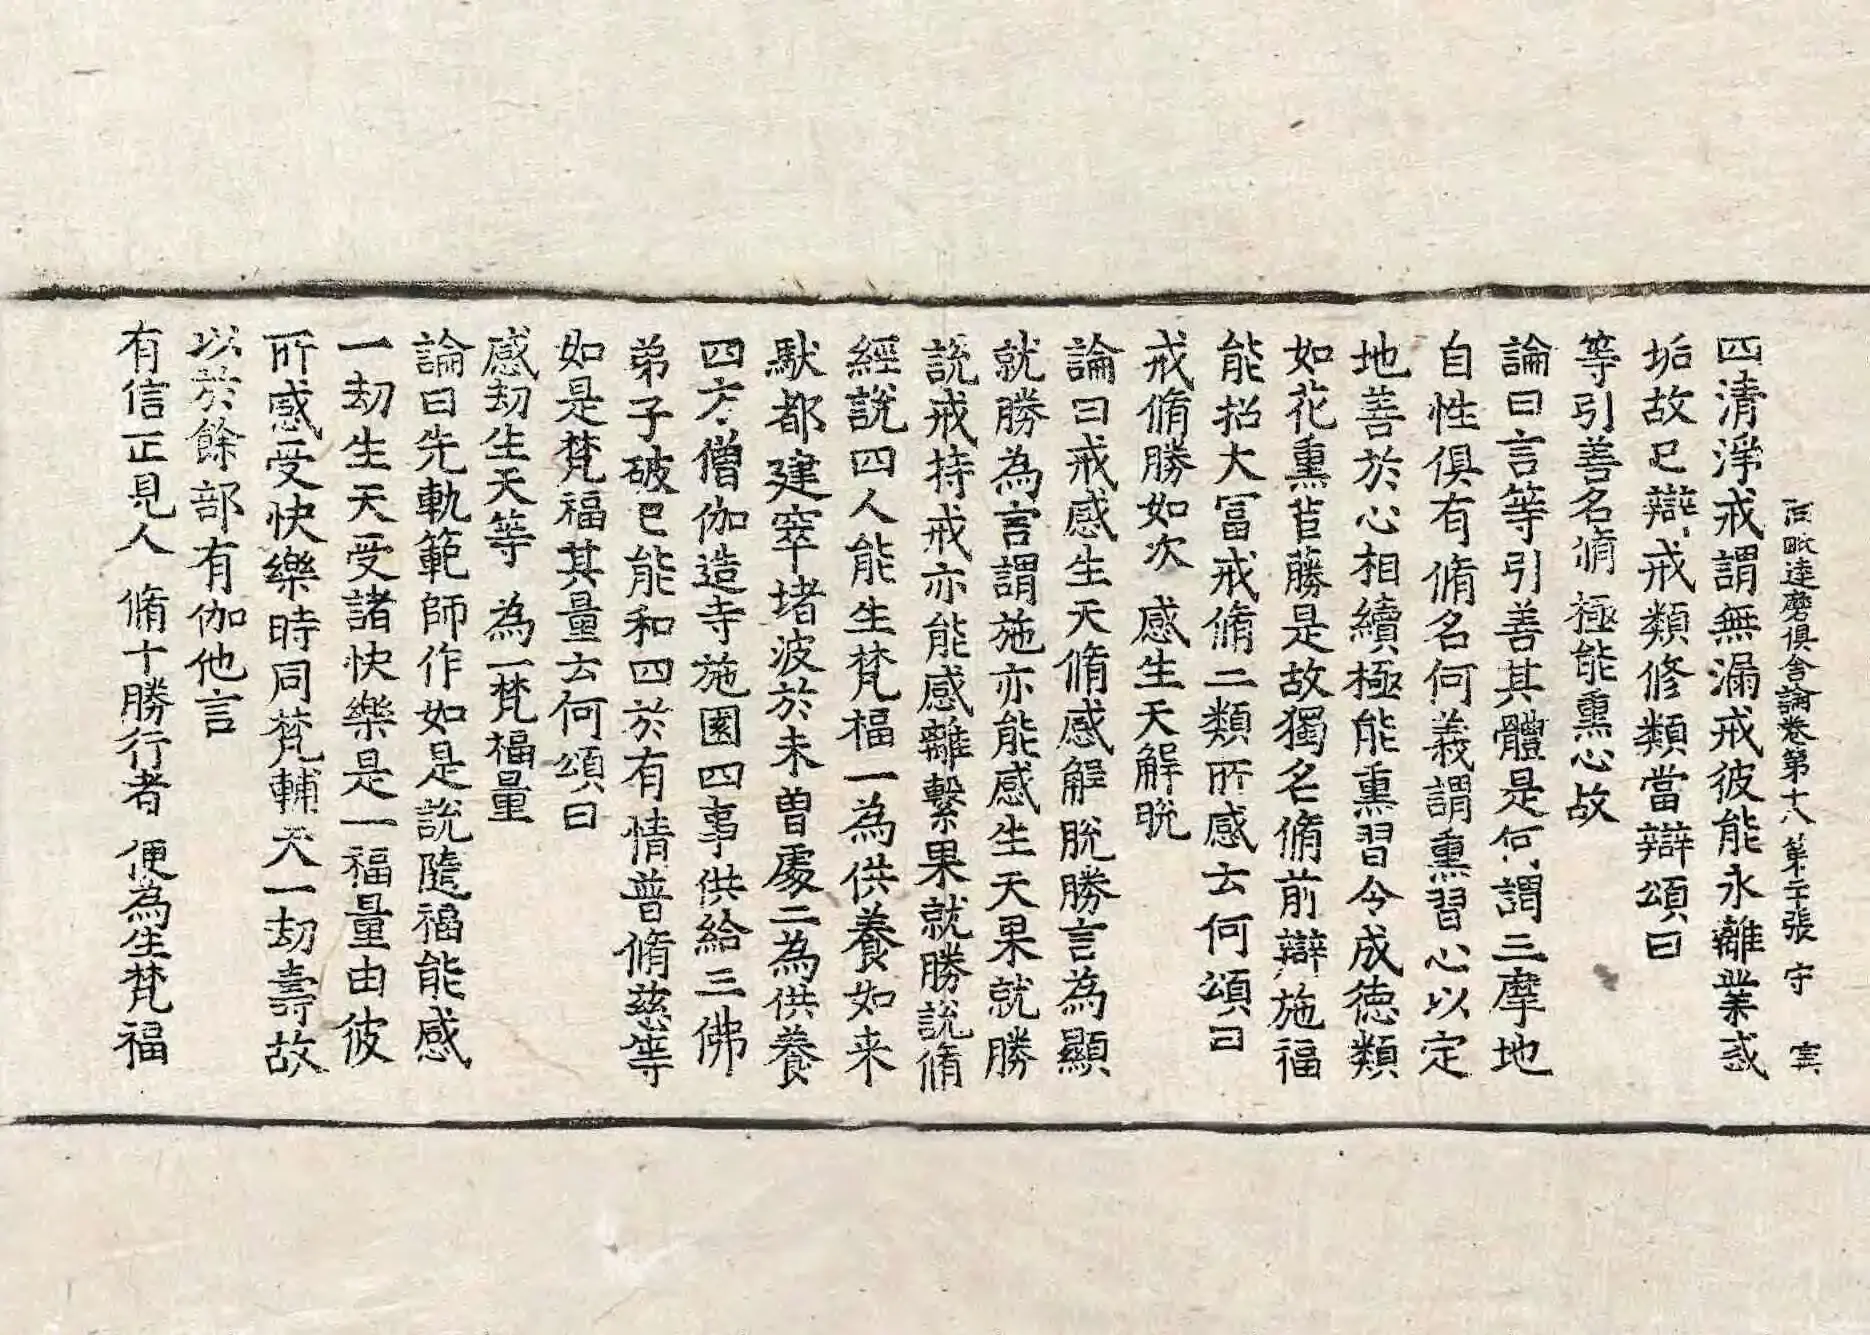 阿毗達磨俱舍論卷第十八 第二十張 守
四清淨戒謂無漏戒彼能永離業惑
垢故已辯戒類修類當辯頌曰
等引善名脩 極能熏心故
論曰言等引善其體是何謂三摩地
自性俱有脩名何義謂熏習心以定
地善於心相續極能熏習令成德類
如花熏苣勝是故獨名脩前辯施福
能招大冨戒脩二類所感云何頌曰
戒脩勝如次 感生天解脫
論曰戒感生天脩感解脫勝言為顯
就勝為言謂施亦能感生天果就勝
說戒持戒亦能感離繫果就勝說脩
經說四人能生梵福一為供養如来
馱都建窣堵波於未曾處二為供養
四方僧伽造寺施園四事供給三佛
弟子破已能和四於有情普脩慈等
如是梵福其量云何頌曰
感劫生天等 為一梵福量
論曰先軌範師作如是說隨福能感
一劫生天受諸快樂是一福量由彼
所感受快樂時同梵輔天一劫壽故
以於餘部有伽他言
有信正見人 脩十勝行者 便為生梵福